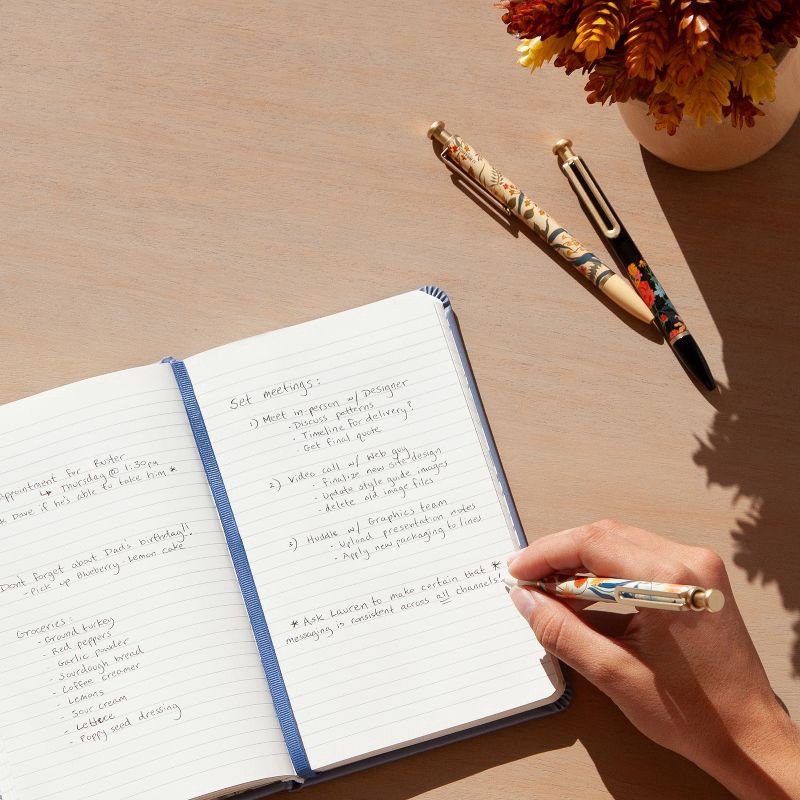 Appointment for Baxter
↳ Thursday @ 1:30pm
Dave if he's able to take him *
Don't forget about Dad's birthday!!
- Pick up Blueberry-Lemon cake
Groceries:
- Ground turkey
- Red peppers
- Garlic powder
- Sourdough bread
- Coffee creamer
- Lemons
- Sour cream
- Lettuce
- Poppy seed dressing
Set meetings:
1) Meet in-person w/ Designer
· Discuss patterns
· Timeline for delivery?
· Get final quote
2) Video call w/ Web guy
· Finalize new site design
· Update style guide images
· delete old image files
3) Huddle w/ Graphics team
· Upload presentation notes
· Apply new packaging to lines
* Ask Lauren to make certain that *
messaging is consistent across all channels!